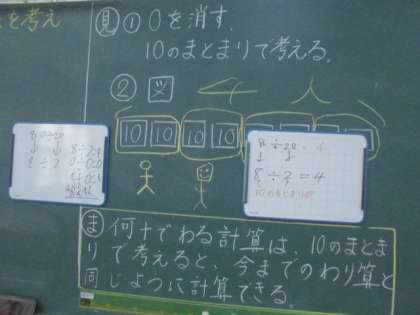 と考え
見 ① 0を消す
10のまとまりで考える。
② 図 4人
10 10 10 10
8÷2
8÷20 4
8÷2=4
ま 何十でわる計算は、10のまとま
りで考えると、今までのわり算と
同じように計算できる。